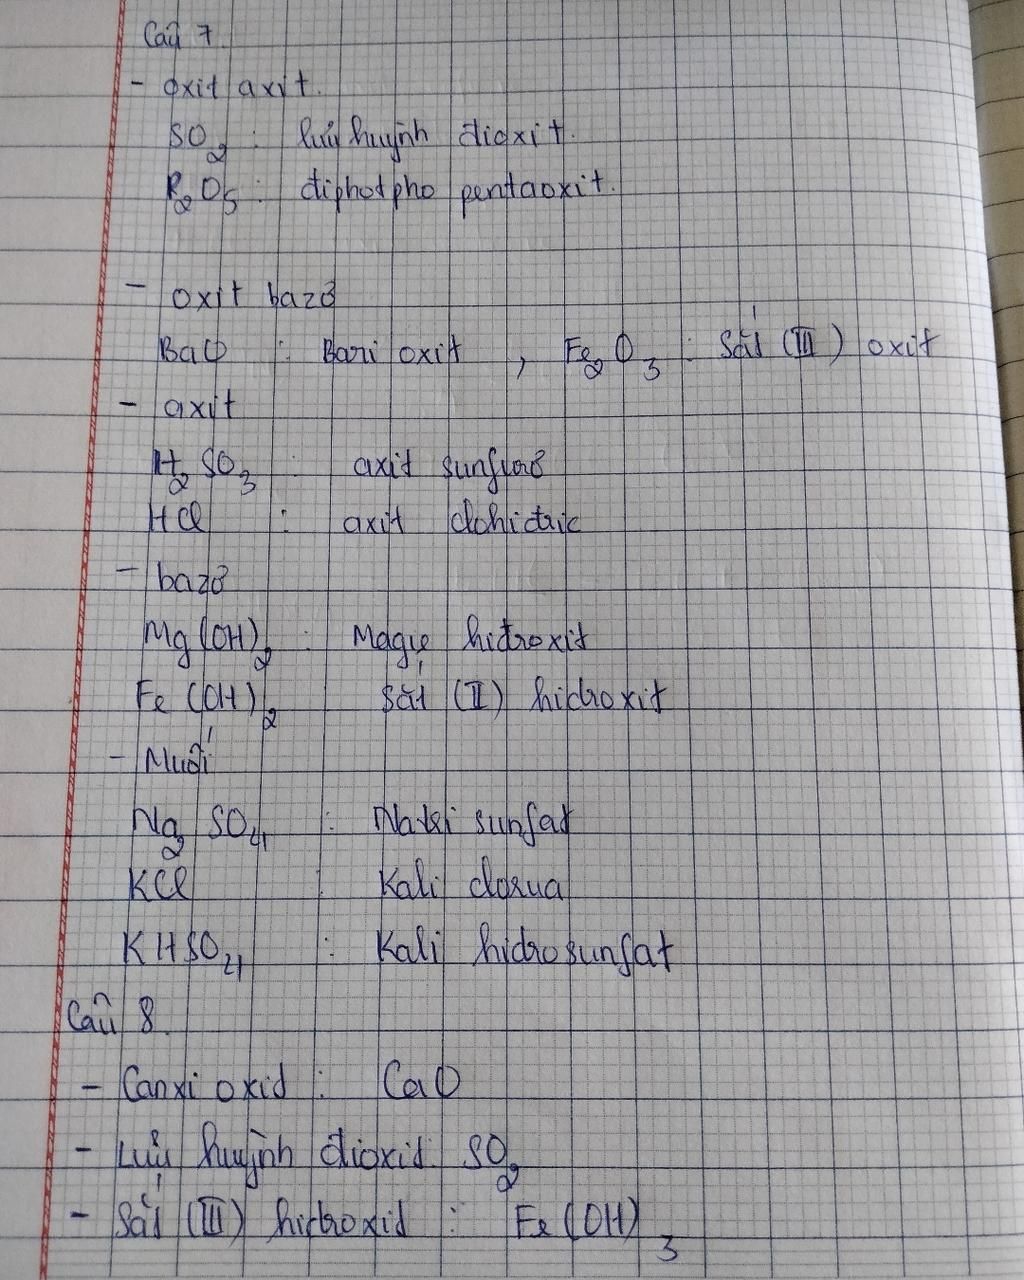 Câu 7.
- oxit axit.
SO₂ : lưu huỳnh đioxit.
P₂O₅ : điphotpho pentaoxit.
- oxit bazơ
BaO : Bari oxit , Fe₂O₃ : Sắt (III) oxit
- axit
H₂SO₃ : axit sunfurơ
HCl : axit clohiđric
- bazơ
Mg(OH)₂ : Magie hiđroxit
Fe(OH)₂ sắt (II) hidroxit
- Muối
Na₂SO₄ : Natri sunfat
KCl : Kali clorua
KHSO₄ : Kali hidrosunfat
Câu 8.
- Canxi oxid : CaO
- Lưu huỳnh đioxit: SO₂
- Sắt (III) hiđroxid : Fe(OH)₃